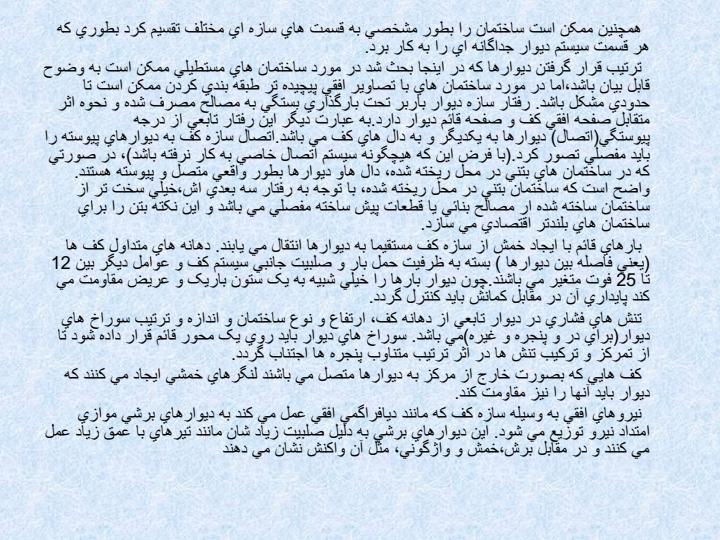 همچنين ممكن است ساختمان را بطور مشخصي به قسمت هاي سازه اي مختلف تقسيم كرد بطوري كه
هر قسمت سيستم ديوار جداگانه اي را به كار برد.
ترتيب قرار گرفتن ديوارها كه در اينجا بحث شد در مورد ساختمان هاي مستطيلي ممكن است به وضوح
قابل بيان باشد،اما در مورد ساختمان هاي با تصاوير افقي پيچيده تر طبقه بندي كردن ممكن است تا
حدودي مشكل باشد. رفتار سازه ديوار باربر تحت بارگذاري بستگي به مصالح مصرف شده و نحوه اثر
متقابل صفحه افقي كف و صفحه قائم ديوار دارد.به عبارت ديگر اين رفتار تابعي از درجه
پيوستگي(اتصال) ديوارها به يكديگر و به دال هاي كف مي باشد.اتصال سازه كف به ديوارهاي پيوسته را
بايد مفصلي تصور كرد.(با فرض اين كه هيچگونه سيستم اتصال خاصي به كار نرفته باشد)، در صورتي
كه در ساختمان هاي بتني در محل ريخته شده، دال هاو ديوارها بطور واقعي متصل و پيوسته هستند.
واضح است كه ساختمان بتني در محل ريخته شده، با توجه به رفتار سه بعدي اش،خيلي سخت تر از
ساختمان ساخته شده ار مصالح بنائي يا قطعات پيش ساخته مفصلي مي باشد و اين نكته بتن را براي
ساختمان هاي بلندتر اقتصادي مي سازد.
بارهاي قائم با ايجاد خمش از سازه كف مستقيما به ديوارها انتقال مي يابند. دهانه هاي متداول كف ها
(يعني فاصله بين ديوارها ) بسته به ظرفيت حمل بار و صلبيت جانبي سيستم كف و عوامل ديگر بين 12
تا 25 فوت متغير مي باشند.چون ديوار بارها را خيلي شبيه به يک ستون باريک و عريض مقاومت مي
كند پايداري آن در مقابل كمانش بايد كنترل گردد.
تنش هاي فشاري در ديوار تابعي از دهانه كف، ارتفاع و نوع ساختمان و اندازه و ترتيب سوراخ هاي
ديوار(براي در و پنجره و غيره)مي باشد. سوراخ هاي ديوار بايد روي يک محور قائم قرار داده شود تا
از تمركز و تركيب تنش ها در اثر ترتيب متناوب پنجره ها اجتناب گردد.
كف هايي كه بصورت خارج از مركز به ديوارها متصل مي باشند لنگرهاي خمشي ايجاد مي كنند كه
ديوار بايد آنها را نيز مقاومت كند.
نيروهاي افقي به وسيله سازه كف كه مانند ديافراگمي افقي عمل مي كند به ديوارهاي برشي موازي
امتداد نيرو توزيع مي شود. اين ديوارهاي برشي به دليل صلبيت زياد شان مانند تيرهاي با عمق زياد عمل
مي كنند و در مقابل برش،خمش و واژگوني، مثل آن واكنش نشان مي دهند